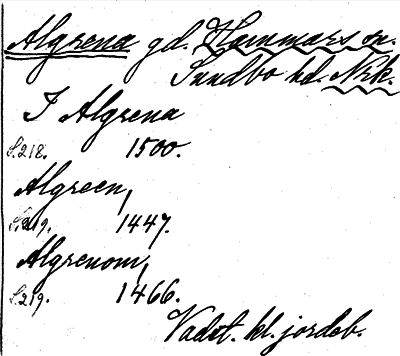 Algrena gd. Hammars sn.
Sundbo hd. Nrk.
I Algrena
S.218. 1500.
Algreen,
S.219. 1447.
Algrenom,
S.219. 1466.
Vadst. kl. jordeb.